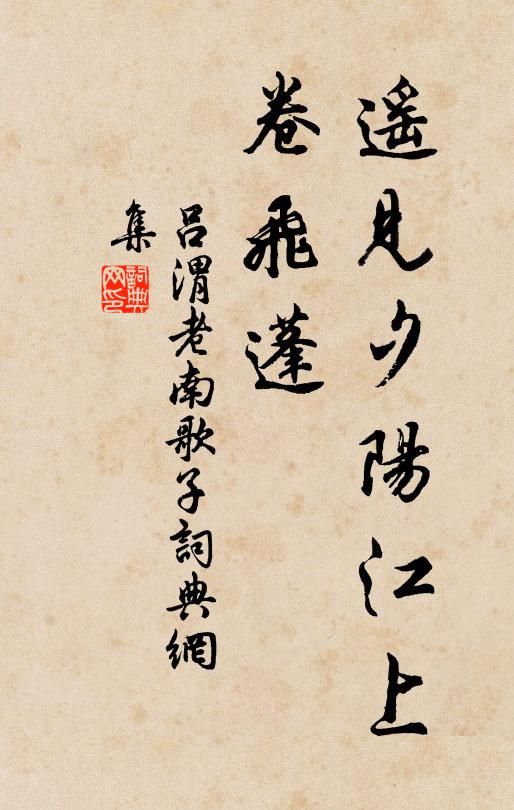 遥見夕陽江上
卷飛蓬
吕渭老南歌子詞典網
集
詞典
网印